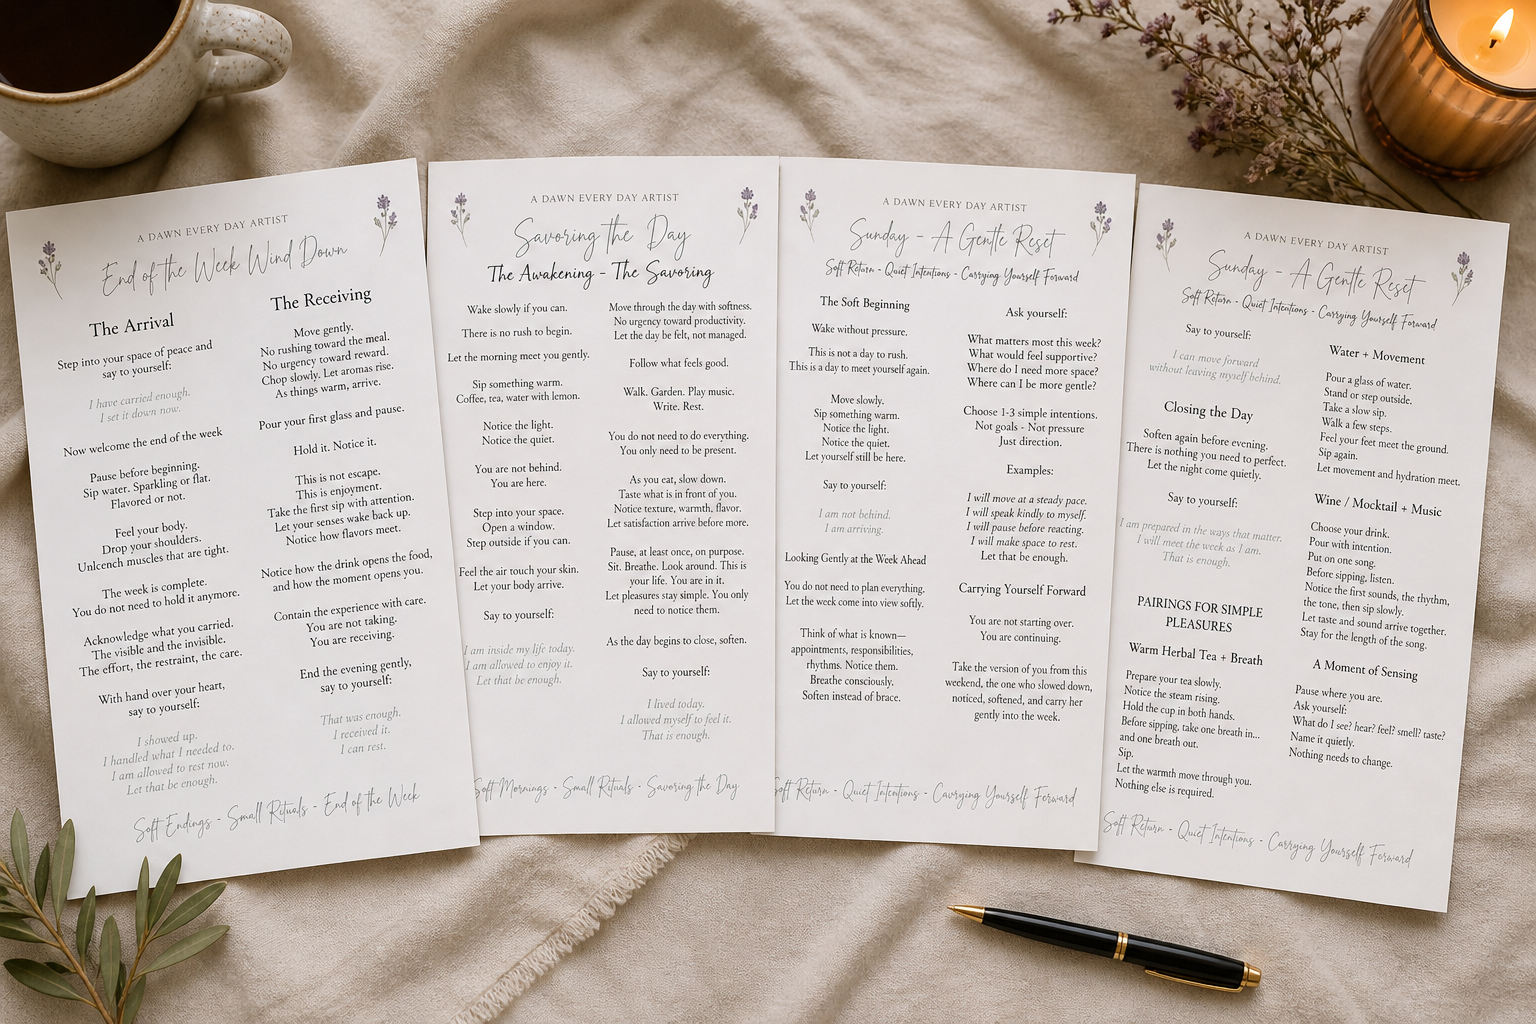 A DAWN EVERY DAY ARTIST
End of the Week Wind Down
The Arrival
Step into your space of peace and
say to yourself:
I have carried enough.
I set it down now.
Now welcome the end of the week
Pause before beginning.
Sip water. Sparkling or flat.
Flavored or not.
Feel your body.
Drop your shoulders.
Unlcench muscles that are tight.
The week is complete.
You do not need to hold it anymore.
Acknowledge what you carried.
The visible and the invisible.
The effort, the restraint, the care.
With hand over your heart,
say to yourself:
I showed up.
I handled what I needed to.
I am allowed to rest now.
Let that be enough.
The Receiving
Move gently.
No rushing toward the meal.
No urgency toward reward.
Chop slowly. Let aromas rise.
As things warm, arrive.
Pour your first glass and pause.
Hold it. Notice it.
This is not escape.
This is enjoyment.
Take the first sip with attention.
Let your senses wake back up.
Notice how flavors meet.
Notice how the drink opens the food,
and how the moment opens you.
Contain the experience with care.
You are not taking.
You are receiving.
End the evening gently,
say to yourself:
That was enough.
I received it.
I can rest.
Soft Endings - Small Rituals - End of the Week
A DAWN EVERY DAY ARTIST
Savoring the Day
The Awakening - The Savoring
Wake slowly if you can.
There is no rush to begin.
Let the morning meet you gently.
Sip something warm.
Coffee, tea, water with lemon.
Notice the light.
Notice the quiet.
You are not behind.
You are here.
Step into your space.
Open a window.
Step outside if you can.
Feel the air touch your skin.
Let your body arrive.
Say to yourself:
I am inside my life today.
I am allowed to enjoy it.
Let that be enough.
Move through the day with softness.
No urgency toward productivity.
Let the day be felt, not managed.
Follow what feels good.
Walk. Garden. Play music.
Write. Rest.
You do not need to do everything.
You only need to be present.
As you eat, slow down.
Taste what is in front of you.
Notice texture, warmth, flavor.
Let satisfaction arrive before more.
Pause, at least once, on purpose.
Sit. Breathe. Look around. This is
your life. You are in it.
Let pleasures stay simple. You only
need to notice them.
As the day begins to close, soften.
Say to yourself:
I lived today.
I allowed myself to feel it.
That is enough.
Soft Mornings - Small Rituals - Savoring the Day
A DAWN EVERY DAY ARTIST
Sunday - A Gentle Reset
Soft Return - Quiet Intentions - Carrying Yourself Forward
The Soft Beginning
Wake without pressure.
This is not a day to rush.
This is a day to meet yourself again.
Move slowly.
Sip something warm.
Notice the light.
Notice the quiet.
Let yourself still be here.
Say to yourself:
I am not behind.
I am arriving.
Looking Gently at the Week Ahead
You do not need to plan everything.
Let the week come into view softly.
Think of what is known—
appointments, responsibilities,
rhythms. Notice them.
Breathe consciously.
Soften instead of brace.
Ask yourself:
What matters most this week?
What would feel supportive?
Where do I need more space?
Where can I be more gentle?
Choose 1-3 simple intentions.
Not goals - Not pressure
Just direction.
Examples:
I will move at a steady pace.
I will speak kindly to myself.
I will pause before reacting.
I will make space to rest.
Let that be enough.
Carrying Yourself Forward
You are not starting over.
You are continuing.
Take the version of you from this
weekend, the one who slowed down,
noticed, softened, and carry her
gently into the week.
Soft Return - Quiet Intentions - Carrying Yourself Forward
A DAWN EVERY DAY ARTIST
Sunday - A Gentle Reset
Soft Return - Quiet Intentions - Carrying Yourself Forward
Say to yourself:
I can move forward
without leaving myself behind.
Closing the Day
Soften again before evening.
There is nothing you need to perfect.
Let the night come quietly.
Say to yourself:
I am prepared in the ways that matter.
I will meet the week as I am.
That is enough.
PAIRINGS FOR SIMPLE
PLEASURES
Warm Herbal Tea + Breath
Prepare your tea slowly.
Notice the steam rising.
Hold the cup in both hands.
Before sipping, take one breath in...
and one breath out.
Sip.
Let the warmth move through you.
Nothing else is required.
Water + Movement
Pour a glass of water.
Stand or step outside.
Take a slow sip.
Walk a few steps.
Feel your feet meet the ground.
Sip again.
Let movement and hydration meet.
Wine / Mocktail + Music
Choose your drink.
Pour with intention.
Put on one song.
Before sipping, listen.
Notice the first sounds, the rhythm,
the tone, then sip slowly.
Let taste and sound arrive together.
Stay for the length of the song.
A Moment of Sensing
Pause where you are.
Ask yourself:
What do I see? hear? feel? smell? taste?
Name it quietly.
Nothing needs to change.
Soft Return - Quiet Intentions - Carrying Yourself Forward